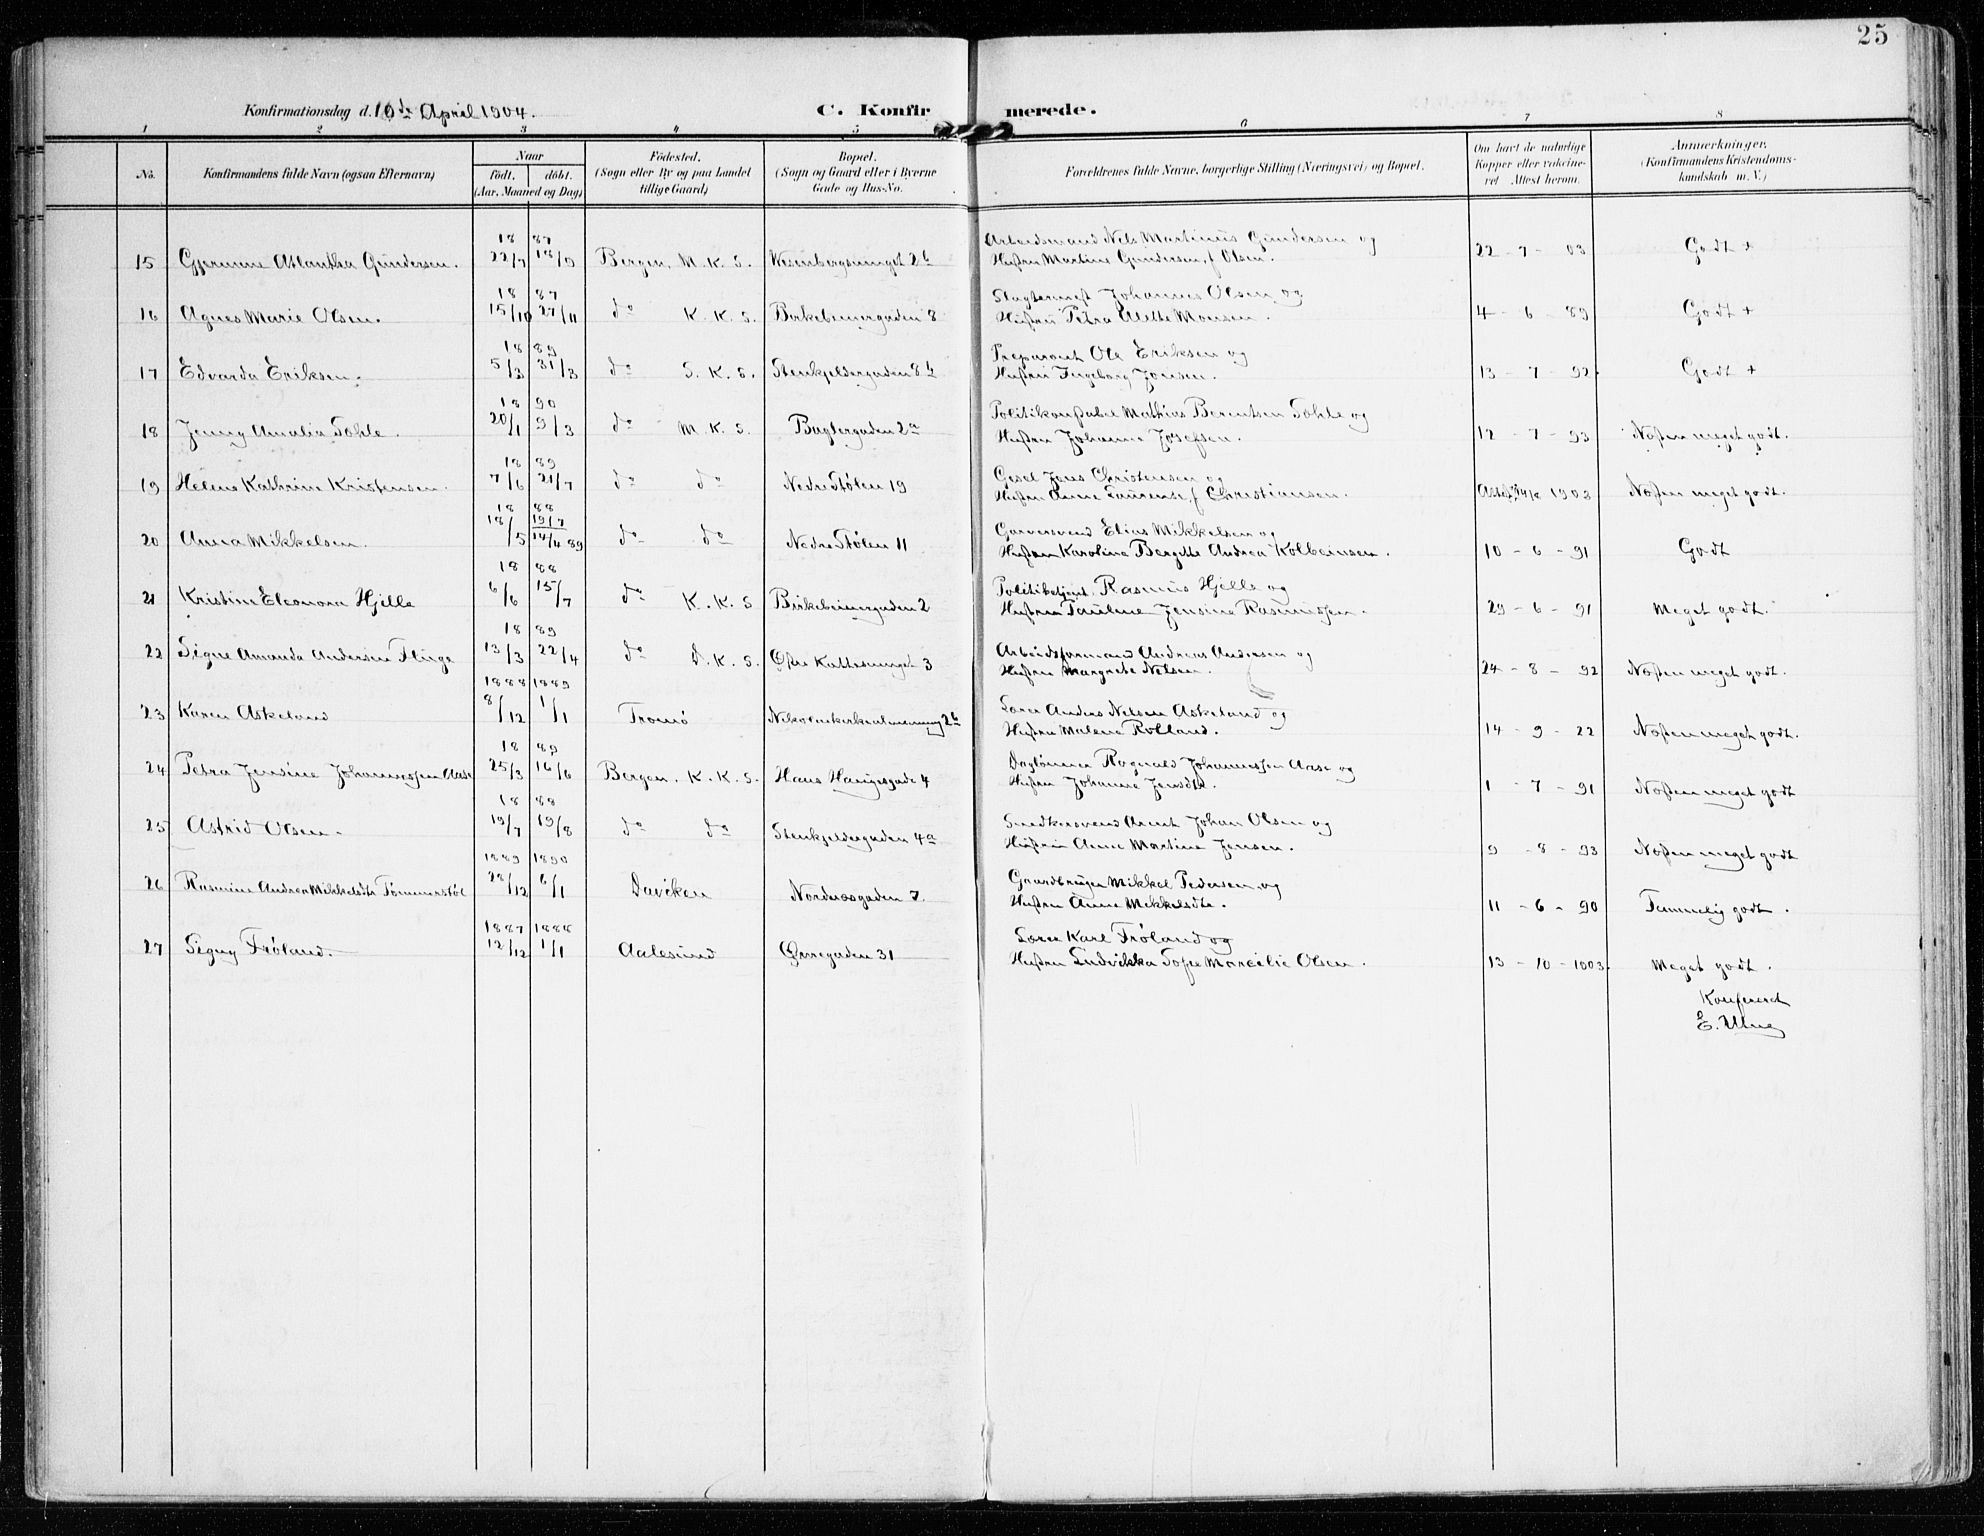 25
Konfirmationsdag d. 10de April 1904. C. Konfirmerede.
1 2 3 4 5 6 7 8
No. Konfirmandens fulde Navn (ogsaa Efternavn) Naar født. døbt. (Aar, Maaned og Dag) Fødested. (Sogn eller By og paa Landet tillige Gaard) Bopæl. (Sogn og Gaard eller i Byerne Gade og Hus-No. Forældrenes fulde Navne, borgerlige Stilling (Næringsvei) og Bopæl. Om havt de naturlige Kopper eller vakcineret Attest herom. Anmerkninger. (Konfirmandens Kristendomskundskab m. V.)
18 87 Arbeidsmand Nels Martinus Gundersen og
15 Gjermine Atlantha Gundersen. 22/7 18/9 Bergen, M. K. S. Wesenbergsmuget 2b Hustru Martine Gundersen, f Olsen. 22 - 7 - 03 Godt +
18 87 Slagtermest Johannes Olsen og
16 Agnes Marie Olsen. 15/10 27/11 do K. K. S. Birkebeinergaden 8 Hustru Petra Alette Monsen. 4 - 6 - 89 Godt +
18 89 Preparent Ole Eriksen og
17 Edvarda Eriksen. 5/3 31/3 do S. K. S. Stenkjeldergaden 8b Hustru Ingeborg Jonsen. 13 - 7 - 92. Godt +
18 90 Politikonstabel Mathias Berentsen Tohle og
18 Jenny Amalia Tohle. 20/1 9/3 do M. K. S. Bagtergaden 2a Hustru Johanne Josefsen. 12 - 7 - 93 Næsten meget godt.
18 89 Gesel Jens Christensen og
19 Helene Kathrine Kristensen. 7/6 21/7 do do Nedre Stølen 19 Hustru Anne Laurense, f Christiansen. 1903 Næsten meget godt.
18 88 Garversvend Elias Mikkelsen og
20 Anna Mikkelsen. 18/5 19/7 14/4 89 do do Nedre Stølen 11 Hustru Karoline Bergitte Andrea Kolbeinsen. 10 - 6 - 91 Godt
18 88 Politibetjent Rasmus Hjelle og
21 Kristine Eleonora Hjelle 6/6 15/7 do K. K. S Birkebeinergaden 2 Hustru Pauline Jensine Rasmussen. 29 - 6 - 91 Meget godt.
18 89 Arbeidsformand Andreas Andersen og
22 Signe Amanda Andersen Fluge 13/3 22/4 do D. K. S. Øfre Kattesmuget 3 Hustru Margrete Nelsen. 24 - 8 - 92 Næsten meget godt.
1888 1889 Lærer Anders Nelsen Askeland og
23 Karen Askeland 8/12 1/1 Tromø Nikolaikirkealmenning 2b Hustru Malene Rolland. 14 - 9 - 22 Næsten meget godt.
18 89 Daglønner Ragnald Johannessen Aase og
24 Petra Jensine Johannessen Aase 25/3 16/6 Bergen, K. K. S. Hans Haugesgade 4 Hustru Johanne Jensdtr. 1 - 7 - 91 Næsten meget godt
18 88 Snedkersvend Arent Johan Olsen og
25 Astrid Olsen. 19/7 19/8 do do Stenkjeldergaden 4a Hustru Anne Martine Jensen. 9 - 8 - 93 Næsten meget godt
1889 1890 Gaardbruger Mikkel Pedersen og
26 Rasmine Andrea Mikkelsdtr Tømmerstøl 28/12 6/1 Daviken Nordnæsgaden 7 Hustru Anne Mikkelsdtr. 11 - 6 - 90 Temmelig godt.
1887 1888 Lærer Karl Frøland og
27 Signy Frøland. 12/12 1/1 Aalesund Ørregaden 31 Hustru Ludvikka Sofie Marcelie Olsen. 13 - 10 - 1003. Meget godt.
Konfereret